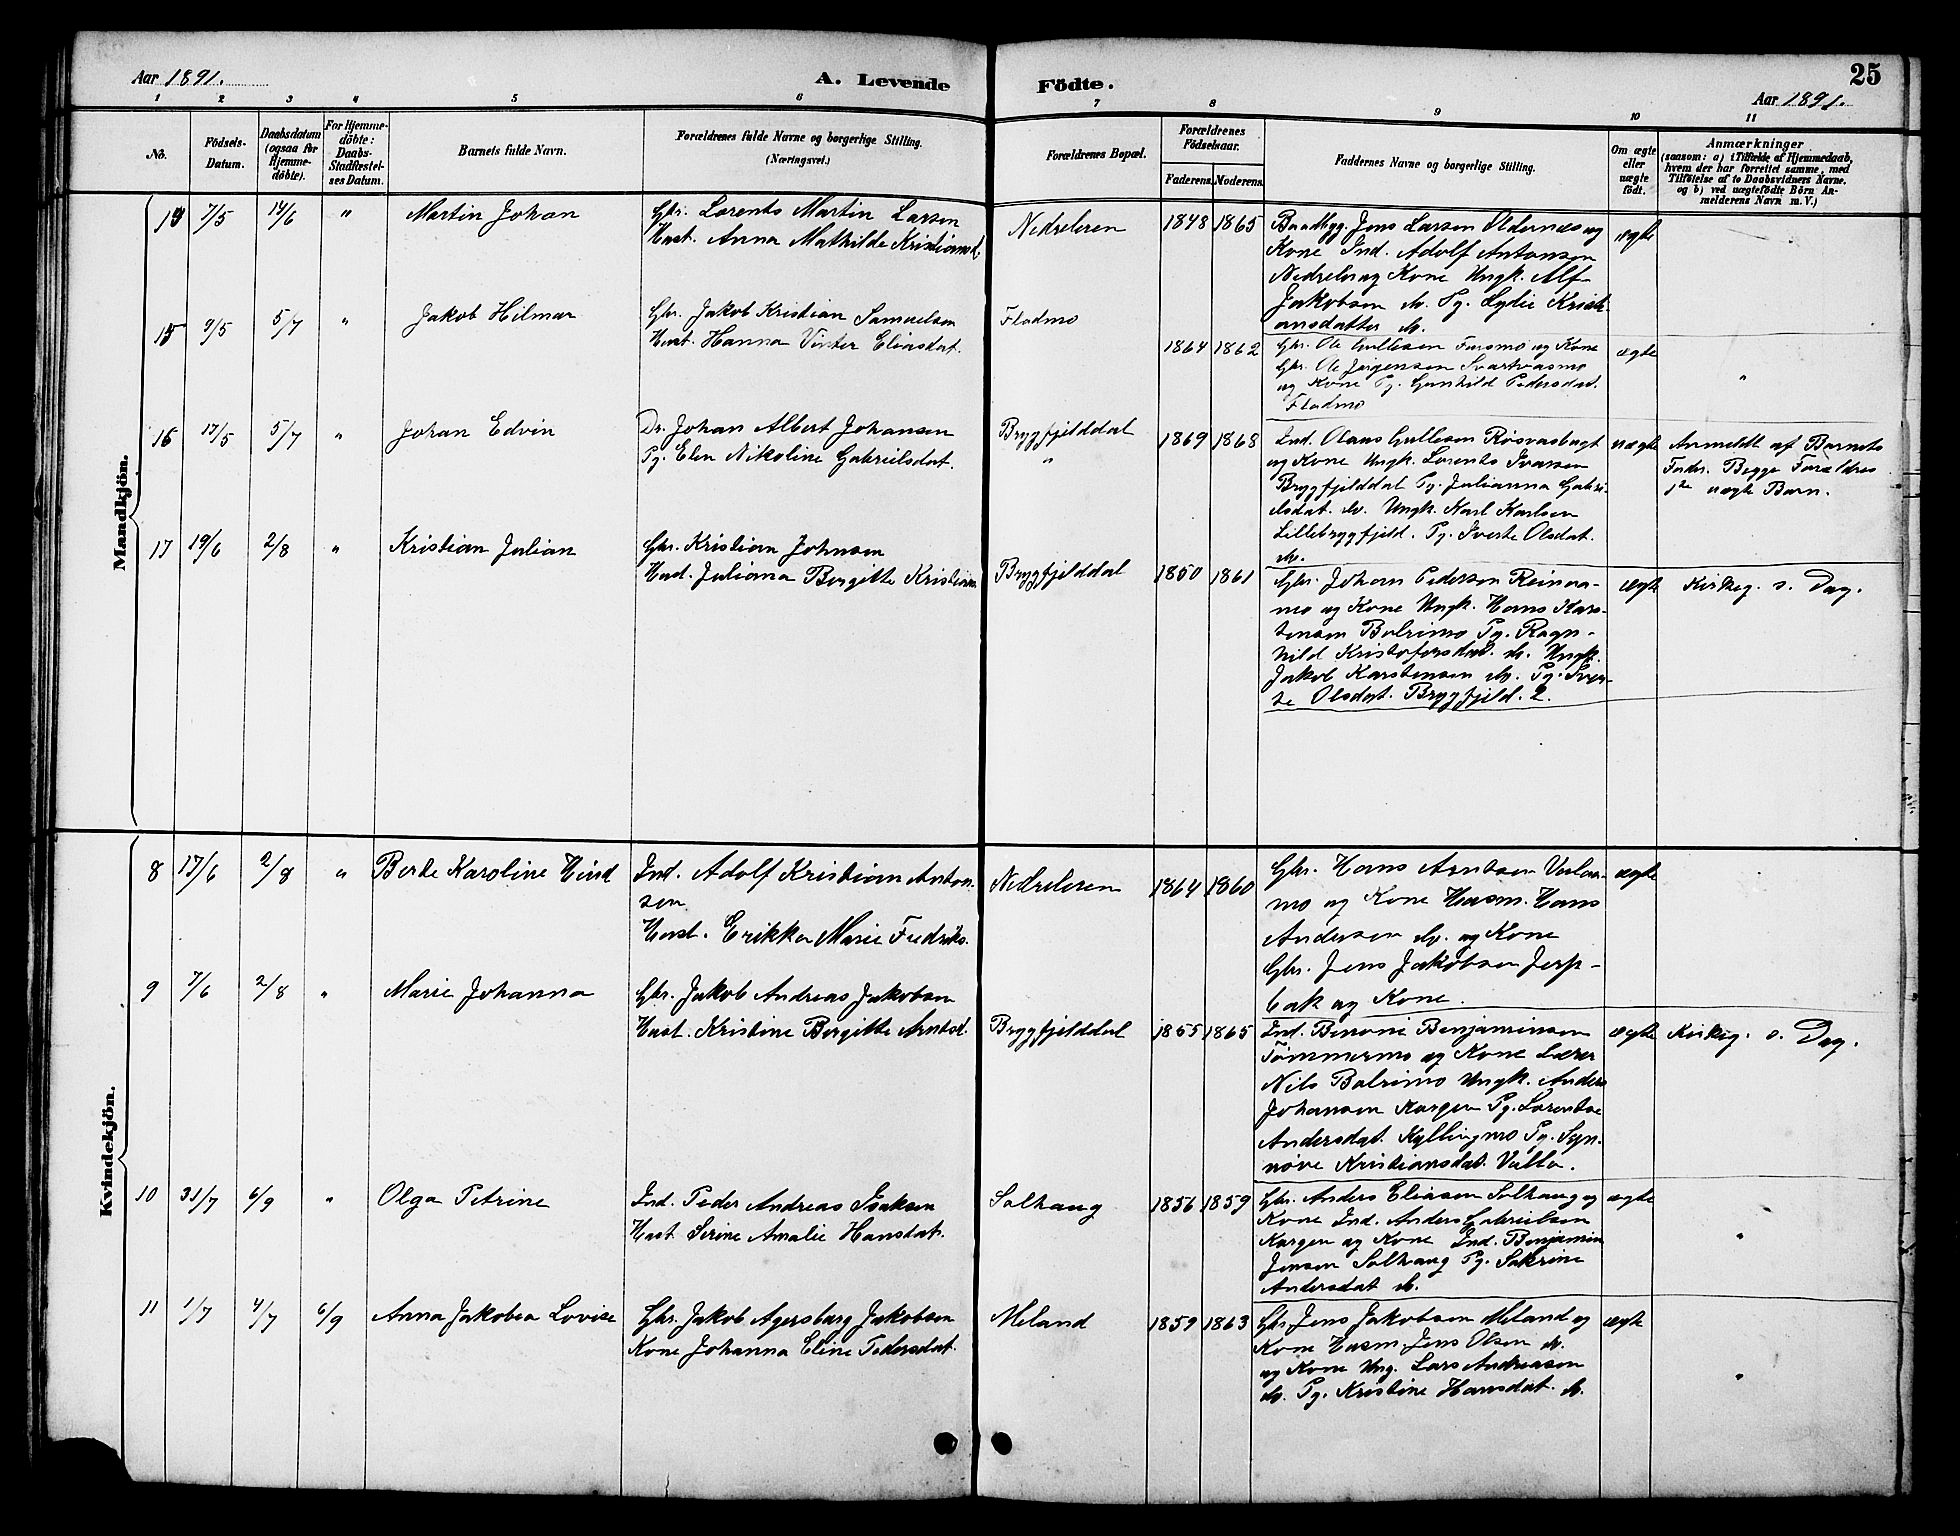 Aar 1891.
A. Levende
Födte.
25
Aar 1891.
1 2 3 4 5 6 7 8 9 10 11
No.
Födsels-
Datum.
Daabsdatum
(ogsaa for
Hjemme-
döbte).
For Hjemme-
döbte:
Daabs-
Stadfæstel-
ses Datum.
Barnets fulde Navn.
Forældrenes fulde Navne og borgerlige Stilling.
(Næringsvei.)
Forældrenes Bopæl.
Forældrenes
Födselsaar.
Faderens. Moderens.
Faddernes Navne og borgerlige Stilling.
Om ægte
eller
uægte
födt.
Anmærkninger
(saasom: a) i Tilfælde af Hjemmedaab,
hvem der har forrettet samme, med
Tilföielse af to Daabsvidners Navne.
og b) ved uægtefödte Börn An-
melderens Navn m. V.)
Mandkjön.
14 7/5 14/6 " Martin Johan
Gbr. Lorents Martin Larsen
Hust. Anna Mathilde Kristiansd.
Nedreleren 1848 1865
Baadbyg. Jens Larsen Oldernes og
Kone Ind. Adolf Antonsen
Nedreler og Kone Ungk. Alf
Jakobsen do. Pg. Lydie Kristi-
ansdatter do.
ægte
15 9/5 5/7 " Jakob Hilmar
Gbr. Jakob Kristian Samuelsen
Hust. Hanna Vinter Eliasdat.
Fladmo 1864 1862
Gbr. Ole Gullesen Fursmo og Kone
Gbr. Ole Jørgensen Svartvasmo
og Kone Pg. Gunhild Pedersdat.
Fladmo
ægte "
16 17/5 5/7 " Johan Edvin
Dr. Johan Albert Johansen
Pg. Elen Nikoline Gabrielsdat.
Brygfjelddal
"
1869 1868
Ind. Olaus Gullesen Røsvasbugt
og Kone Ungk. Lorents Ivarsen
Brygfjelddal Pg. Julianna Gabri-
elsdat. do. Ungk. Karl Karlsen
Lillebrygfjeld. Pg. Sverte Olsdat.
do.
uægte
Anmeldt af Barnets
Fader. Begge Forældres
1ste uægte Barn.
17 19/6 2/8 " Kristian Julian
Gbr. Kristian Johnsen
Hust. Juliana Bergitte Kristian
Brygfjelddal 1850 1861
Gbr. Johan Pedersen Reinaa-
mo og Kone Ungk. Hans Kars-
tensen Bolrimo Pg. Ragn-
hild Kristofersdat. do. Ungk.
Jakob Karstensen do. Pg. Sver-
te Olsdat. Brygfjeld. 2.
ægte Kirkeg. s. Dag.
Kvindekjön.
8 17/6 2/8 " Berte Karoline Hind
Ind. Adolf Kristian Anton-
sen
Hust. Erikka Marie Fredriks.
Nedreleren 1864 1860
Gbr. Hans Arntsen Verlaa-
mo og Kone Husm. Hans
Andersen do. og Kone
Gbr. Jens Jakobsen Jerp-
bak og Kone.
ægte
9 7/6 2/8 " Marie Johanna
Gbr. Jakob Andreas Jakobsen
Hust. Kristine Bergitte Arntsd.
Brygfjelddal 1855 1865
Ind. Benoni Benjaminsen
Tømmermo og Kone Lærer
Nils Bolrimo Ungk. Anders
Johansen Korgen Pg. Lorentse
Andersdat. Kyllingmo Pg. Syn-
nøve Kristiansdat. Valla.
ægte Kirkeg. s. Dag.
10 31/7 6/9 " Olga Petrine
Ind. Peder Andreas Isaksen
Hust. Serine Amalie Hansdat.
Solhaug 1856 1859
Gbr. Anders Eliasen Solhaug og
Kone Ind. Anders Gabrielsen
Korgen og Kone Ind. Benjamin
Jensen Solhaug Pg. Sakrine
Andersdat do.
ægte "
11 1/7 4/7 6/9 Anna Jakobea Lovise
Gbr. Jakob Agersborg Jakobsen
Kone Johanna Eline Pedersdat.
Meland 1859 1863
Gbr. Jens Jakobsen Meland og
Kone Husm. Jens Olsen do.
og Kone Ung. Lars Andreasen
do. Pg. Kristine Hansdat. do.
ægte "